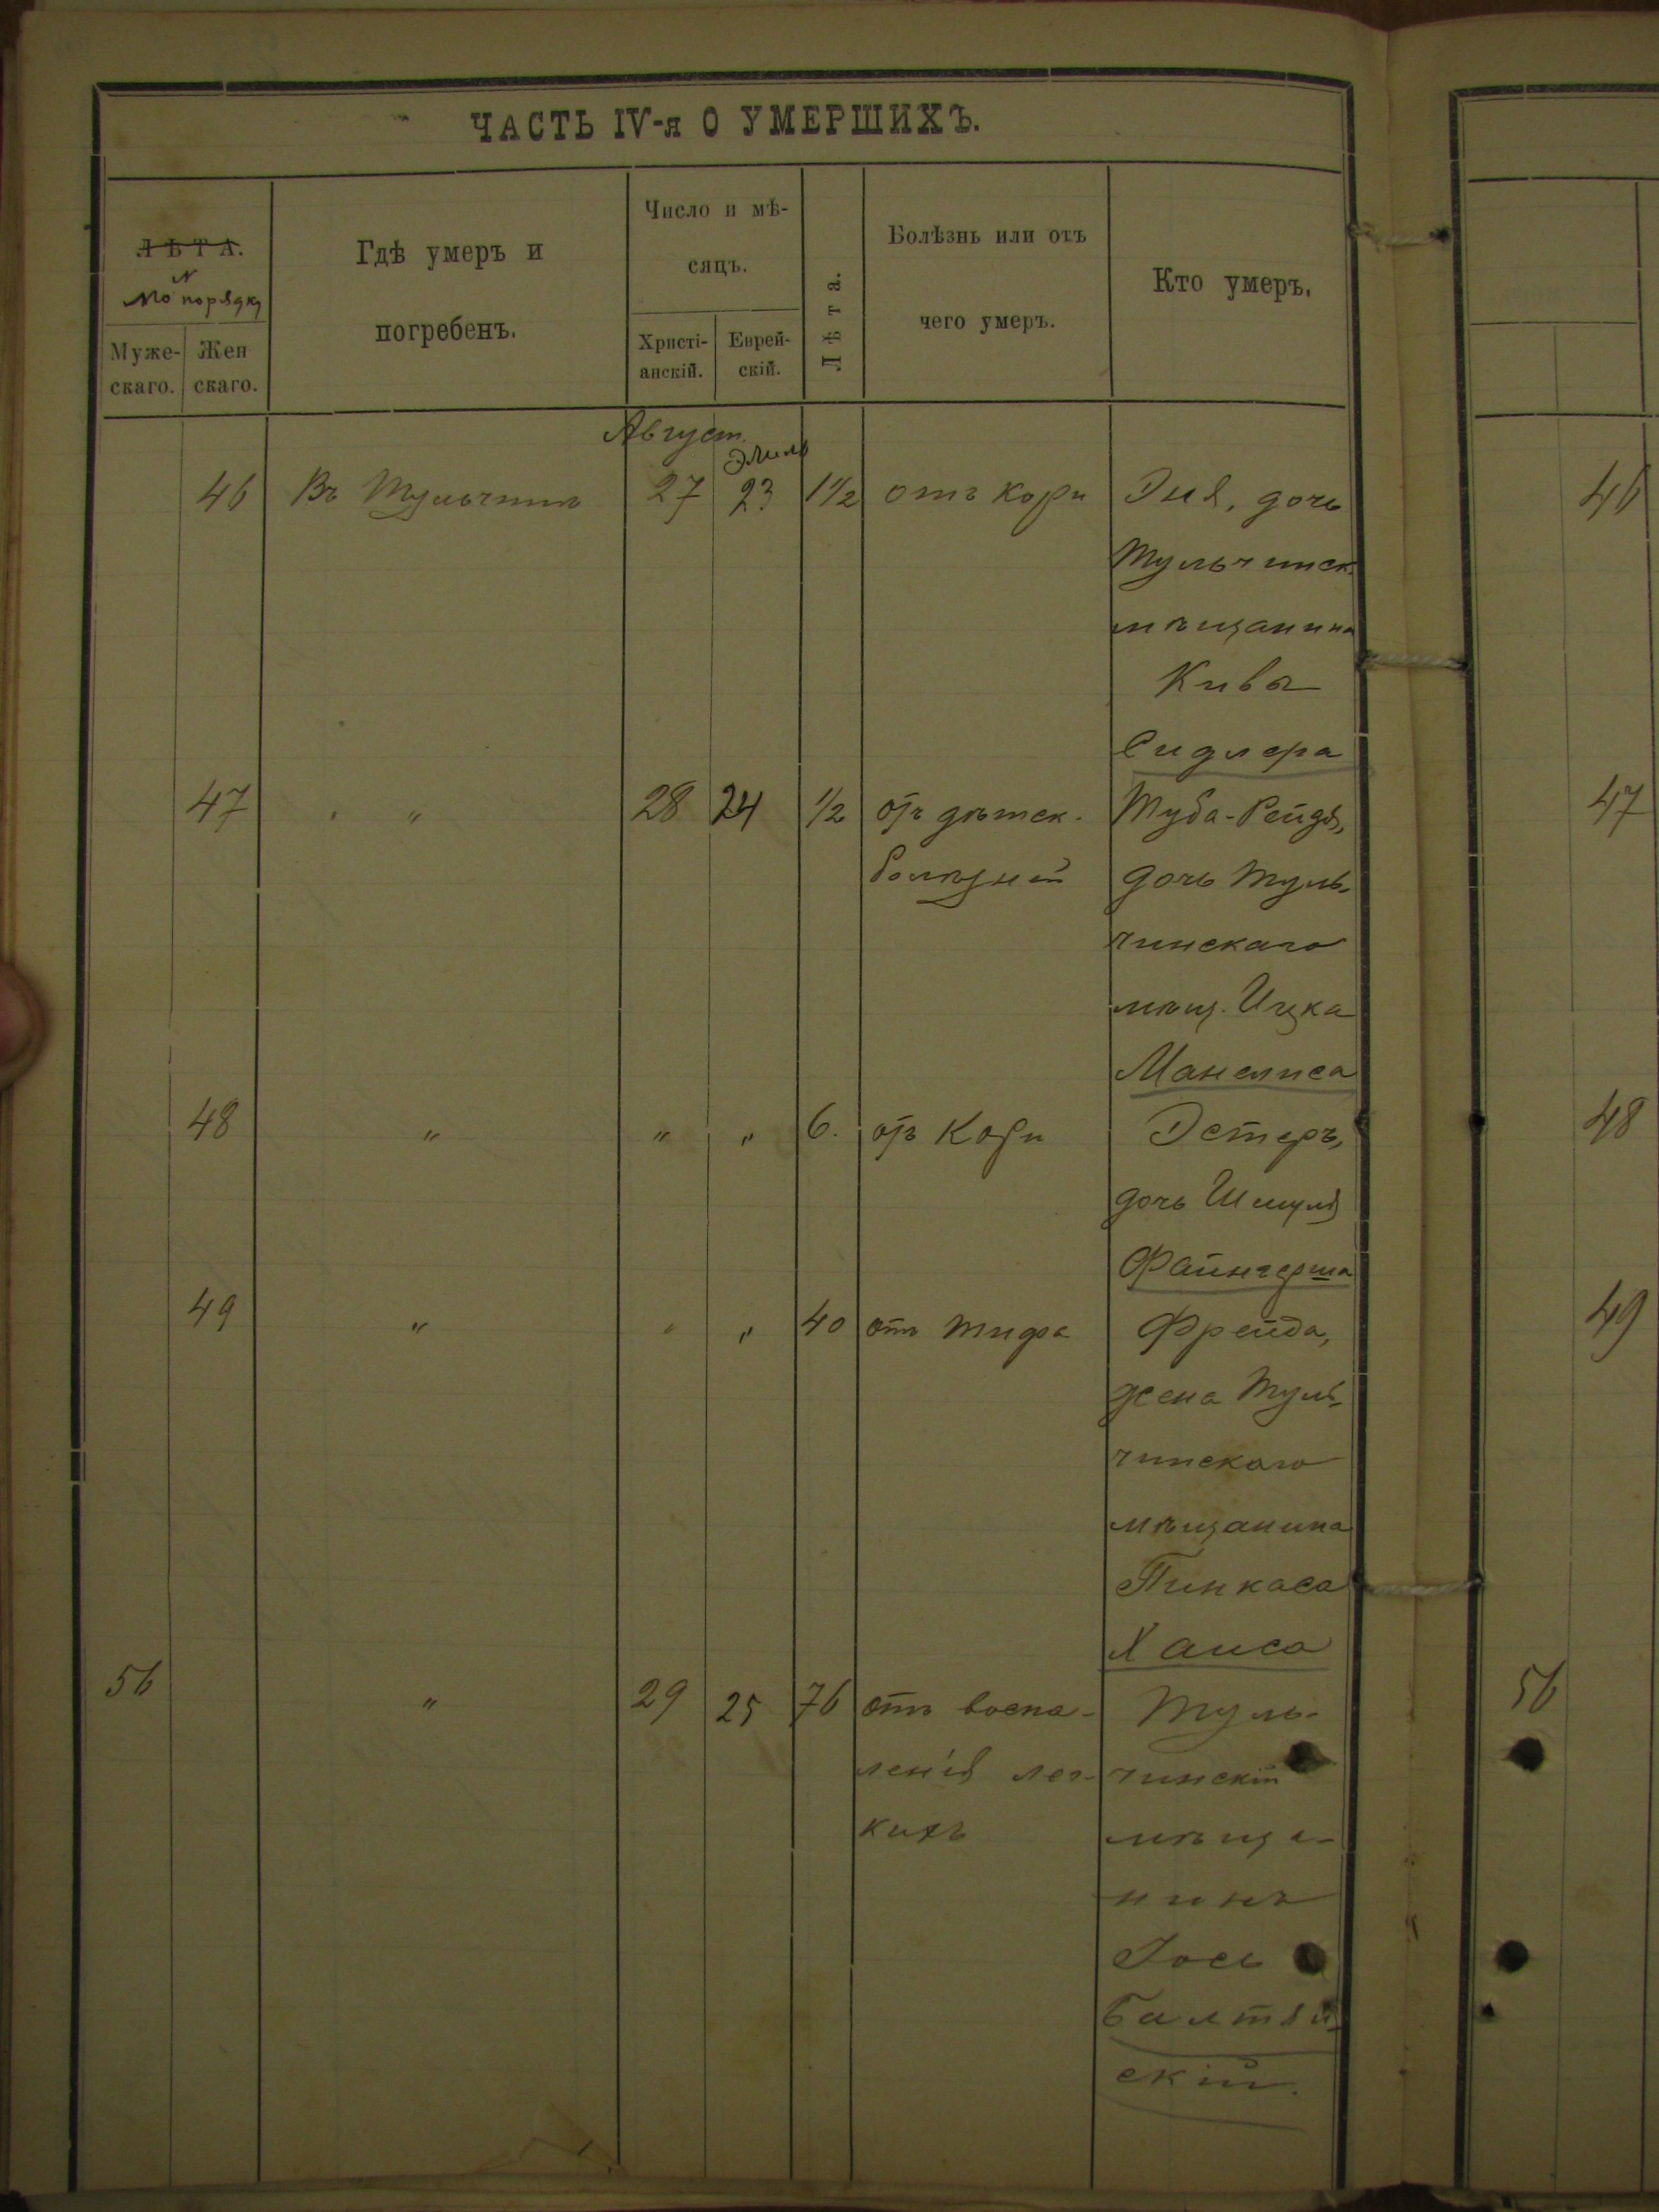 ЧАСТЬ IV-я О УМЕРШИХЪ.
ЛѢТА.
№ по порядку
Муже-
скаго.
Жен
скаго.
Гдѣ умеръ и
погребенъ.
Число и мѣ-
сяцъ.
Христі-
анскій.
Еврей-
скій.
Лѣта.
Болѣзнь или отъ
чего умеръ.
Кто умеръ.
Август.
Элиль
46 Въ Тульчинѣ 27 23 1 1/2 отъ кори Эня, дочь 46
Тульчинск.
мѣщанина
Кивы
Сидлера
47 " 28 24 1/2 отъ дѣтск. Туба-Рейдя, 47
болѣзней дочь Туль-
чинскаго
мѣщ. Ицка
Манелиса
48 " " " 6. отъ Кори Эстеръ, 48
дочь Шмуля
Файнгерша
49 " " " 40 отъ тифа Фрейда, 49
жена Туль-
чинскаго
мѣщанина
Пинкаса
Хаиса
56 " 29 25 76 отъ воспа- Туль- 56
ленія лег- чинскій
кихъ мѣща-
нинъ
Іось
Балтяй
скій.